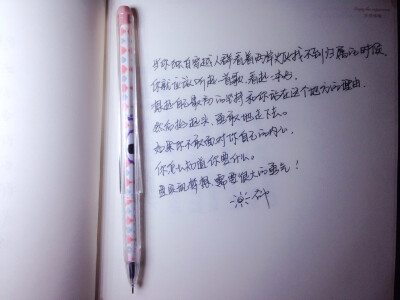 当你独自穿越人群看着万家灯火找不到归属的时候,
你就应该听起一首歌,看起一本书,
想起自己最初的坚持和你站在这个地方的理由,
然后抬起头,勇敢地走下去。
如果你不敢面对你自己的内心
你怎么知道你要什么。
要实现梦想,需要很大的勇气!